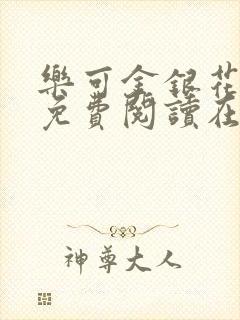 樂可金銀花
免費閱讀在
神尊大人